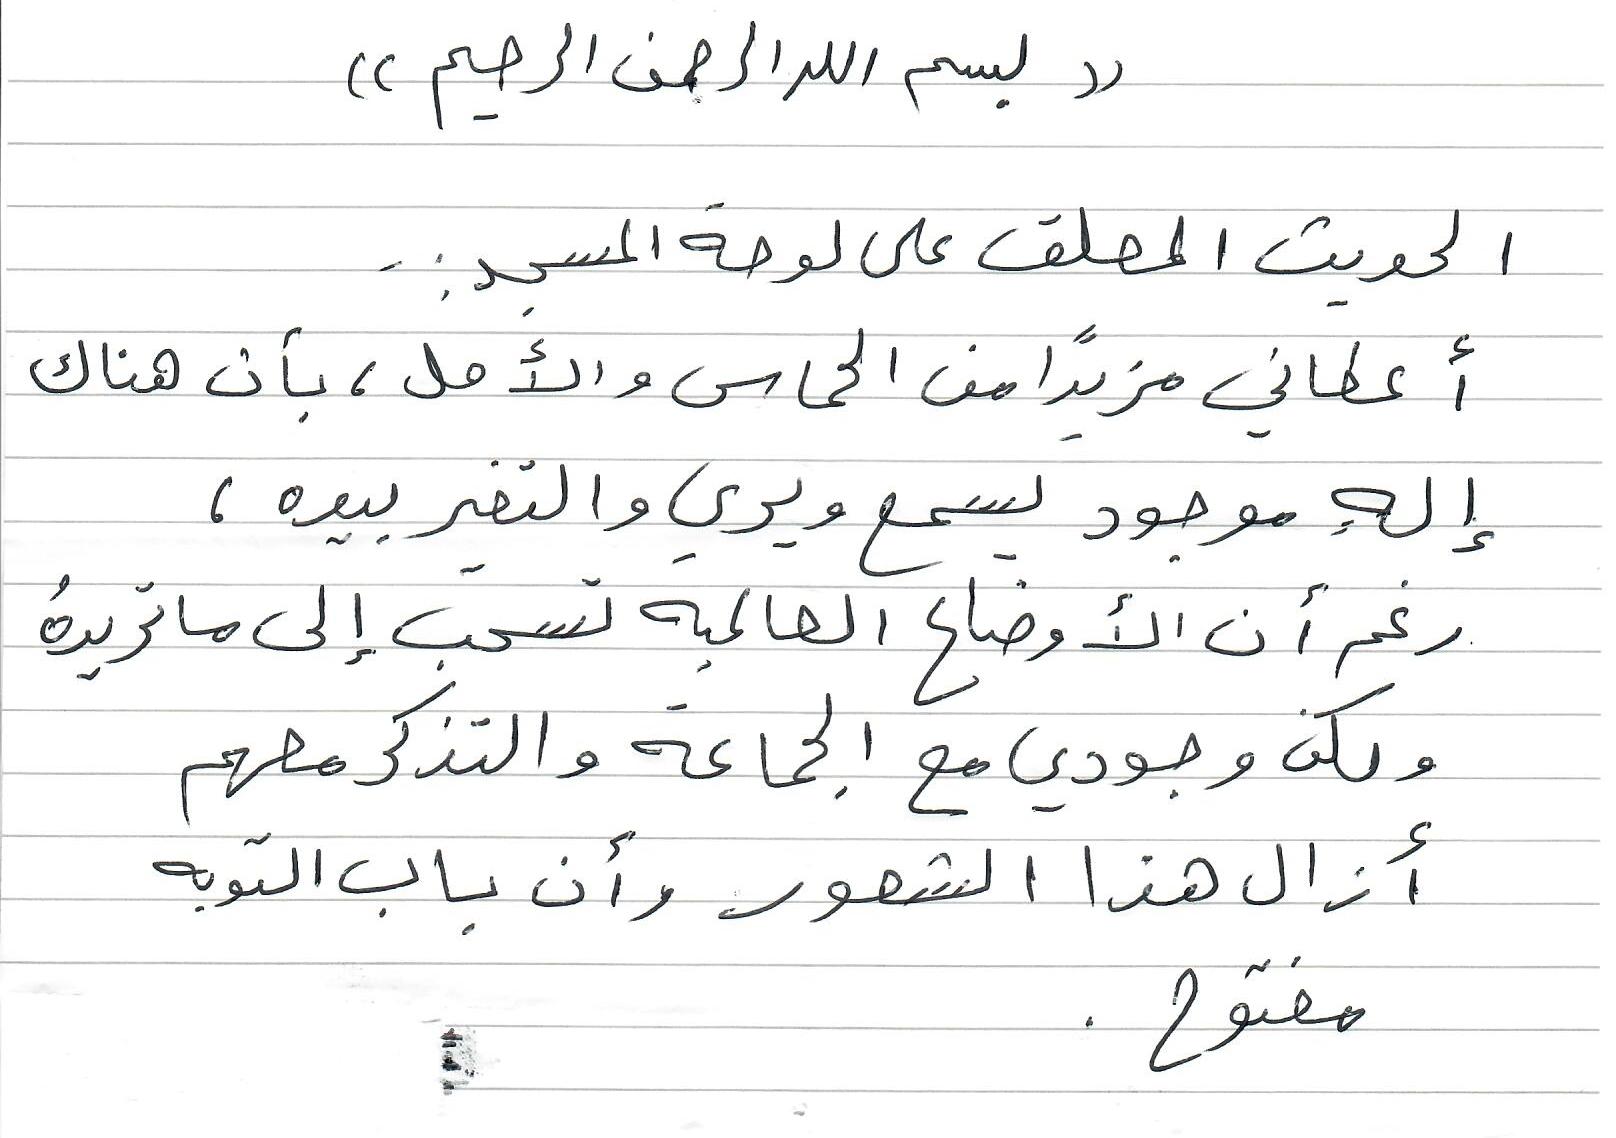 (( بسم الله الرحمن الرحيم ))
الحديث المعلق على لوحة المسجد :-
أعطاني مزيدًا من الحماس والأمل ، بأن هناك
إلهِ موجود يسمع ويرى والتغير بيده ،
رغم أن الأوضاع العالمية تسحب إلى ما تريدهُ
ولكن وجودي مع الجماعة والتذكر معهم
أزال هذا الشعور وأن باب التوبه
مفتوح .